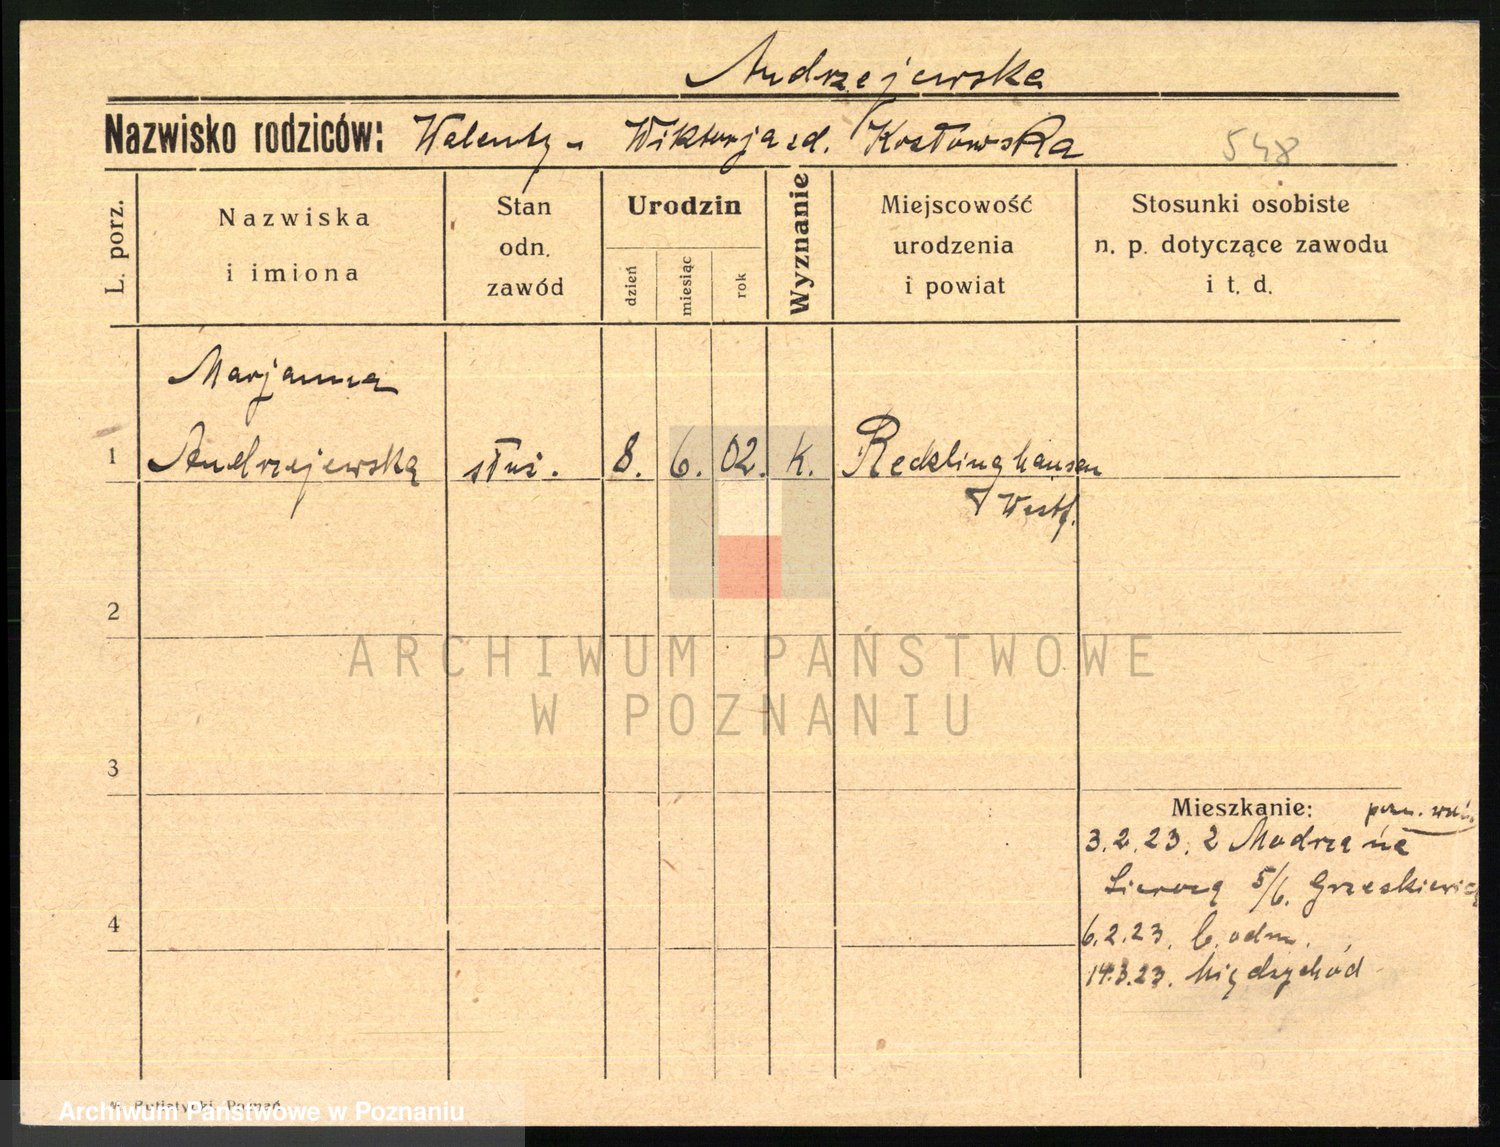 Andrzejewska
Nazwisko rodziców: Walenty - Wiktorja zd. Kozłowska
548
L. porz.
Nazwiska
i imiona
Stan
odn.
zawód
Urodzin
dzień
miesiąc
rok
Wyznanie
Miejscowość
urodzenia
i powiat
Stosunki osobiste
n. p. dotyczące zawodu
i t. d.
Marjanna
1 Andrzejewska służ. 8. 6. 02. k. Recklinghausen
Westf.
2
ARCHIWUM PAŃSTWOWE
W POZNANIU
3
Mieszkanie:
3.2.23. 2
5/6.
4
6.2.23. odm.
14.3.23. Międzychód
Poznań
Archiwum Państwowe w Poznaniu